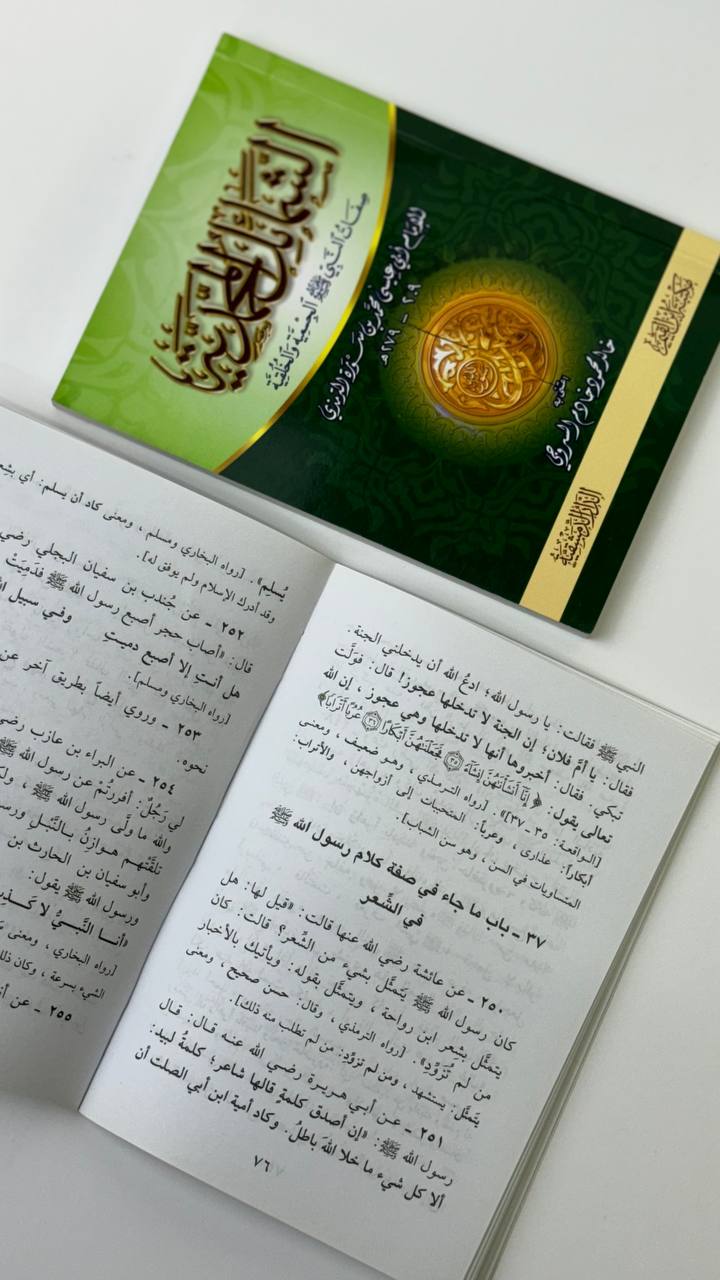 الشمائل المحمدية
صفات النبي ﷺ الخِلْقية والخُلُقية
للإمام أبي عيسى محمد بن سورة الترمذي
٢٠٩ - ٢٧٩هـ
اعتنى به
خالد محمود خادم السروجي
النبي ﷺ فقالت: يا رسول الله؛ ادعُ الله أن يدخلني الجنة.
فقال: يا أمَّ فلان؛ إن الجنة لا تدخلها عجوز! قال: فولَّت
تبكي. فقال: أخبروها أنها لا تدخلها وهي عجوز، إن الله
تعالى يقول: ﴿ إِنَّا أَنشَأْنَاهُنَّ إِنشَاءً ۝٣٥ فَجَعَلْنَاهُنَّ أَبْكَارًا ۝٣٦ عُرُبًا أَتْرَابًا﴾
[الواقعة: ٣٥ ـ ٣٧]». [رواه الترمذي، وهو ضعيف، ومعنى
أبكاراً: عذارى، وعرباً: المتحببات إلى أزواجهن، والأتراب:
المتساويات في السن، وهو سن الشباب].
٣٧ ـ باب ما جاء في صفة كلام رسول الله ﷺ
في الشِّعر
٢٥٠ ـ عن عائشة رضي الله عنها قالت: «قيل لها: هل
كان رسول الله ﷺ يَتمثَّل بشيء من الشِّعر؟ قالت: كان
يتمثَّل بِشِعر ابن رواحة، ويتمثَّل بقوله: ويأتيك بالأخبار
من لم تُزَوِّدِ». [رواه الترمذي، وقال: حسن صحيح، ومعنى
يتَمثَّل: يستشهد، ومن لم تزوِّدِ: من لم تطلب منه ذلك].
٢٥١ ـ عن أبي هريرة رضي الله عنه قال: قال
رسول الله ﷺ: «إن أصدق كلمةٍ قالها شاعر؛ كلمةُ لبيد:
ألا كل شيء ما خلا اللهَ باطلُ. وكاد أمية ابن أبي الصلت أن
٧٦
يُسلِم». [رواه البخاري ومسلم، ومعنى كاد أن يسلم: أي
وقد أدرك الإسلام ولم يوفق له].
٢٥٢ ـ عن جُندب بن سفيان البجلي رضي
قال: «أصاب حجر أصبع رسول الله ﷺ فدَمِيَتْ
هل أنتِ إلا أصبع دميتِ وفي سبيل
[رواه البخاري ومسلم].
٢٥٣ ـ وروي أيضاً بطريق آخر عن
نحوه.
٢٥٤ ـ عن البراء بن عازب رضي
لي رَجُلٌ: أفررتُمْ عن رسول الله
والله ما ولَّى رسول الله ﷺ،
تلقَّتْهم هوازِنُ بالنَّبلِ
وأبو سفيان بن الحارث بن
ورسول الله ﷺ يقول:
«أنا النَّبيُّ لا كَذِب
[رواه البخاري، ومعنى
الشيء بسرعة، وكان
٢٥٥ ـ عن